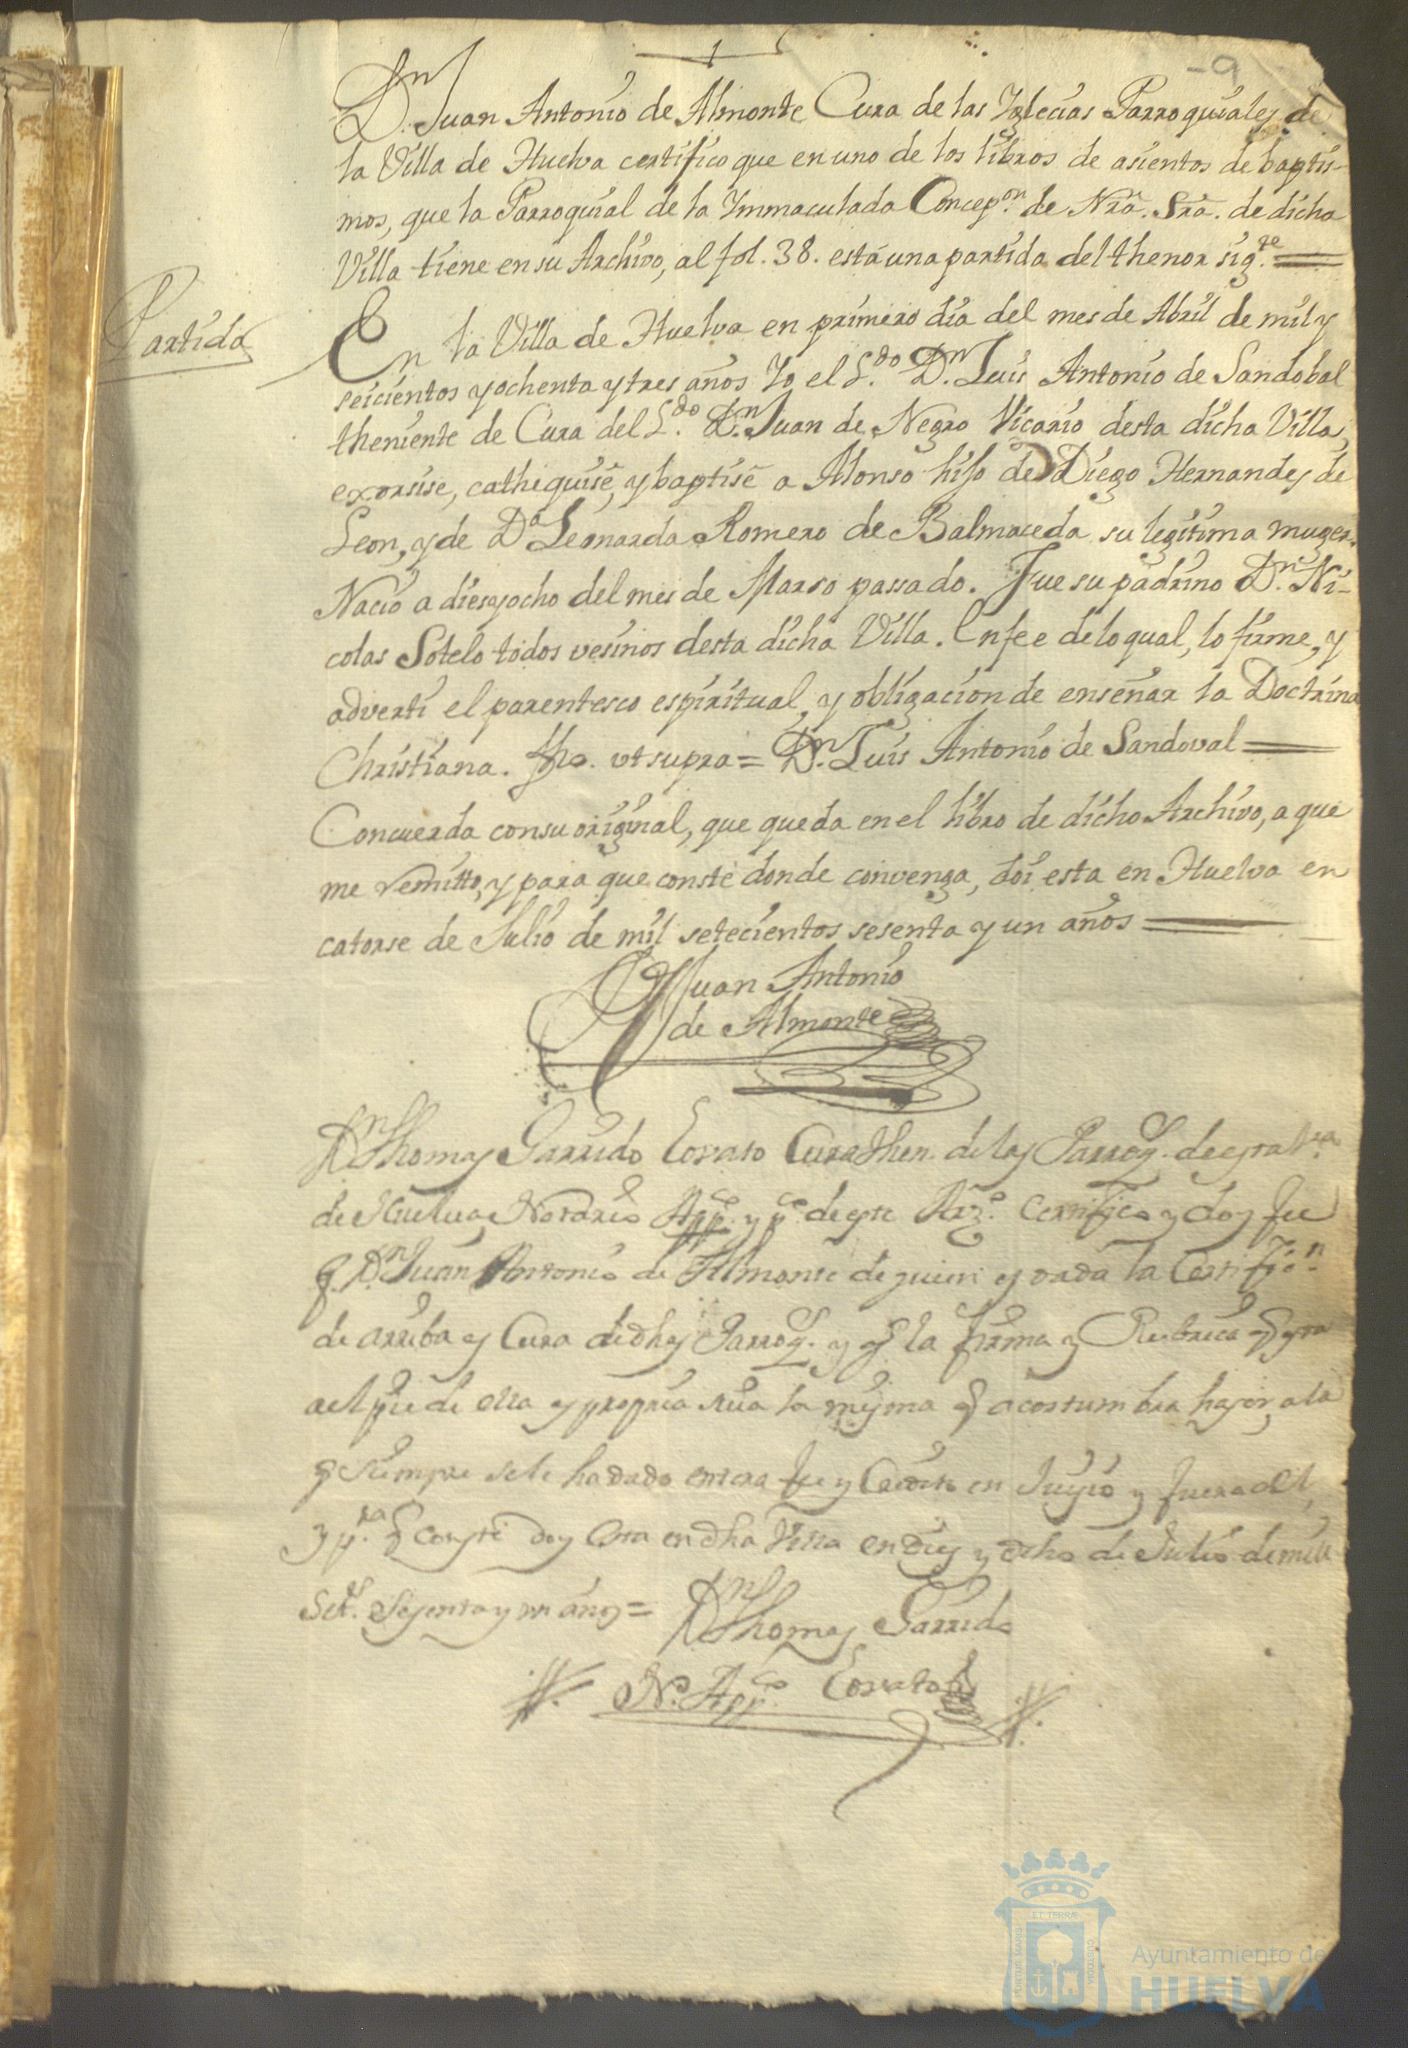 -9
Dn. Juan Antonio de Almonte Cura de las Iglecias Parroquiales de
la Villa de Huelva certifico que en uno de los libros de asientos de baptis-
mos, que la Parroquial de la Ymmaculada Concepon. de Nra. Sra. de dicha
Villa tiene en su Archivo, al fol. 38. està una partida del thenor sigte.
Partida
En la Villa de Huelva en primero dia del mes de Abril de mil y
seicientos y ochenta y tres años Yo el Ldo. Dn. Luis Antonio de Sandobal
theniente de Cura del Ldo. Dn. Juan de Negro Vicario desta dicha Villa,
exorsise, cathequise, y baptise a Alonso hijo de Diego Hernandes de
Leon, y de Da. Leonarda Romero de Balmaceda su legitima muger.
Naciò a diesyocho del mes de Marso passado. Fue su padrino Dn. Ni-
colas Sotelo todos vesinos desta dicha Villa. En fee de lo qual, lo firme, y
adverti el parentesco espiritual, y obligacion de enseñar la Doctrina
Christiana. fho. ut supra = Dn. Luis Antonio de Sandoval
Concuerda con su original, que queda en el libro de dicho Archivo, a que
me remitto, y para que conste donde convenga, doi esta en Huelva en
catorse de Julio de mil setecientos sesenta y un años
Dn Juan Antonio
de Almonte
Dn Thomas Garrido Cura Then. de las Parroq. de esta Va.
de Huelva Notario Appco. y pco. de este Arzo. Certifico y doy fee
q. Dn Juan Antonio de Almonte de quien es dada la Certificon.
de arriba es Cura de dhas Parroqs. y q la firma y Rubrica q esta
al pie de ella es propria suia la misma q acostumbra haser, a la
q siempre se le ha dado entera fee y Credito en Juysio y fuera del,
y pra. q conste doy esta en dha Villa en dies y ocho de Julio de mill
Setts. sesenta y un años =
Dn Thomas Garrido
No. Appco.
ET TERRÆ
PORTUS MARIS
CUSTODIA
Ayuntamiento de
HUELVA